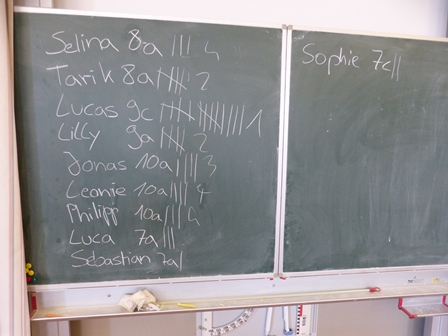 Selina 8a ||| 4
Tarik 8a |||| 2
Lucas 9c 1
Lilly 9a |||| 2
Jonas 10a |||| 3
Leonie 10a |||| 4
Philipp 10a ||| 4
Luca 7a |||
Sebastian 7a |
Sophie 7c ||